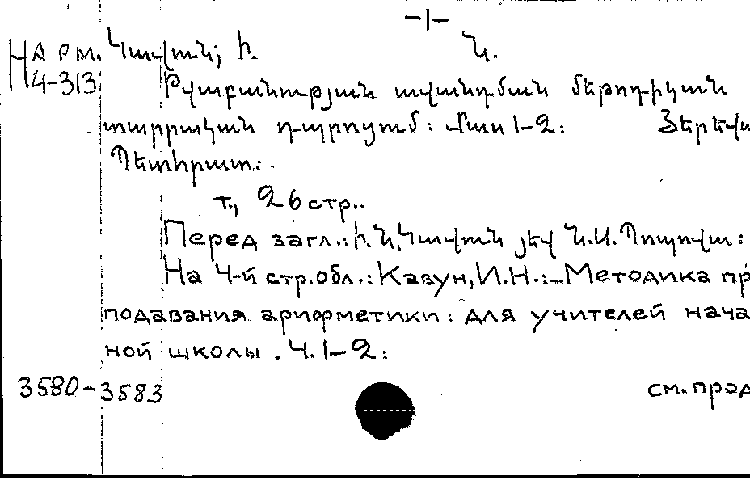 -1-
На рм. Կավուն, Ի. Ն.
4-313 Թվաբանության ավանդման մեթոդիկան
տարրական դպրոցում: Մաս 1-2: Յերեվա
Պետհրատ:
т., 26 стр..
Перед загл.: Ի. Ն. Կավուն յեվ Ն.Ս. Պոպովա:
На 4-й стр. обл.: Кавун, И.Н.:-Методика пр
подавания арифметики: для учителей нача
ной школы. Ч. 1-2:
3580-3583 см. прод